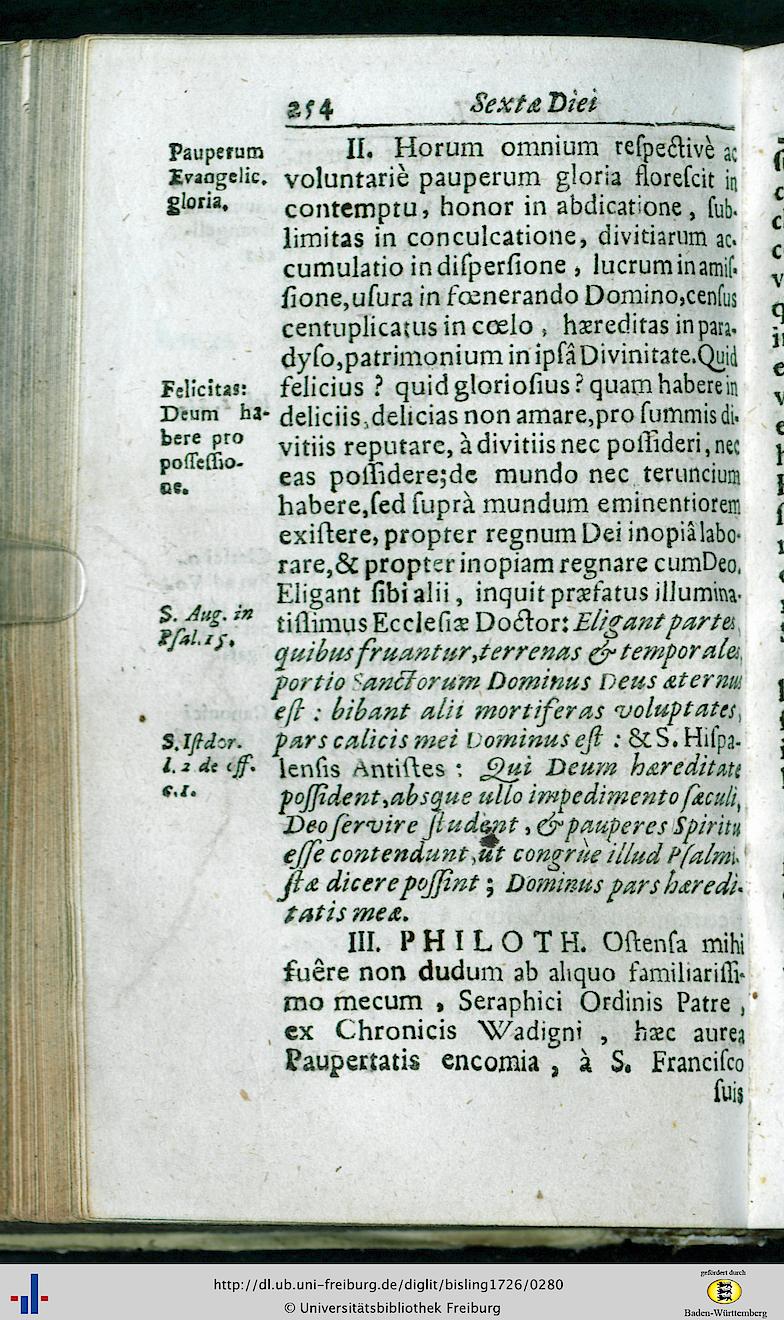 254
Sextæ Diei
Pauperum
Evangelic.
gloria.
II. Horum omnium reſpectivè ac
voluntariè pauperum gloria floreſcit in
contemptu, honor in abdicatione, ſub-
limitas in conculcatione, divitiarum ac-
cumulatio in diſperſione, lucrum in amiſ-
ſione, uſura in fœnerando Domino, cenſus
centuplicatus in cœlo, hæreditas in para-
dyſo, patrimonium in ipſâ Divinitate. Quid
Felicitas:
Deum ha-
bere pro
poſſeſſio-
ne.
felicius? quid glorioſius? quam habere in
deliciis, delicias non amare, pro ſummis di-
vitiis reputare, à divitiis nec poſſideri, nec
eas poſſidere; de mundo nec teruncium
habere, ſed ſuprà mundum eminentiorem
exiſtere, propter regnum Dei inopiâ labo-
rare, & propter inopiam regnare cum Deo.
Eligant ſibi alii, inquit præfatus illumina-
S. Aug. in
Pſal. 15.
tiſſimus Eccleſiæ Doctor: Eligant partes,
quibus fruantur, terrenas & temporales,
portio Sanctorum Dominus Deus æternus
eſt: bibant alii mortiferas voluptates,
S. Iſidor.
l. 2 de off.
c. 1.
pars calicis mei Dominus eſt: & S. Hiſpa-
lenſis Antiſtes: Qui Deum hæreditate
poſſident, absque ullo impedimento ſæculi,
Deo ſervire ſtudent, & pauperes Spiritu
eſſe contendunt, ut congrùe illud Pſalmi-
ſtæ dicere poſſint; Dominus pars hæredi-
tatis meæ.
III. PHILOTH. Oſtenſa mihi
fuêre non dudum ab aliquo familiariſſi-
mo mecum, Seraphici Ordinis Patre,
ex Chronicis Wadigni, hæc aurea
Paupertatis encomia, à S. Franciſco
ſuis
http://dl.ub.uni-freiburg.de/diglit/bisling1726/0280
© Universitätsbibliothek Freiburg
gefördert durch
Baden-Württemberg